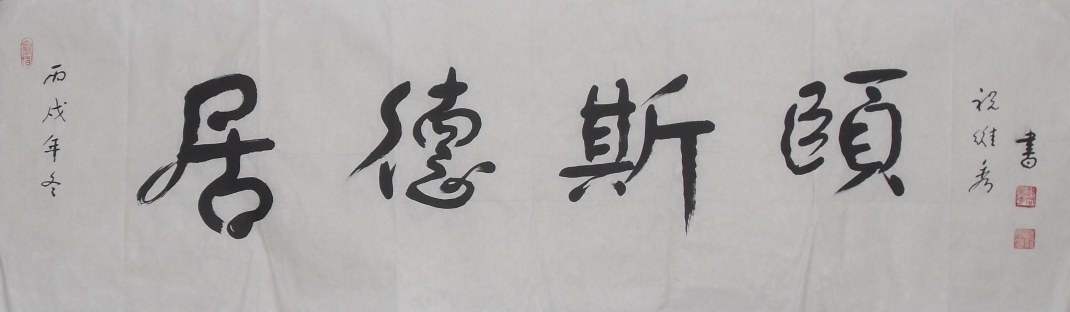 丙戌年冬
居德斯頤
祝維秀
書